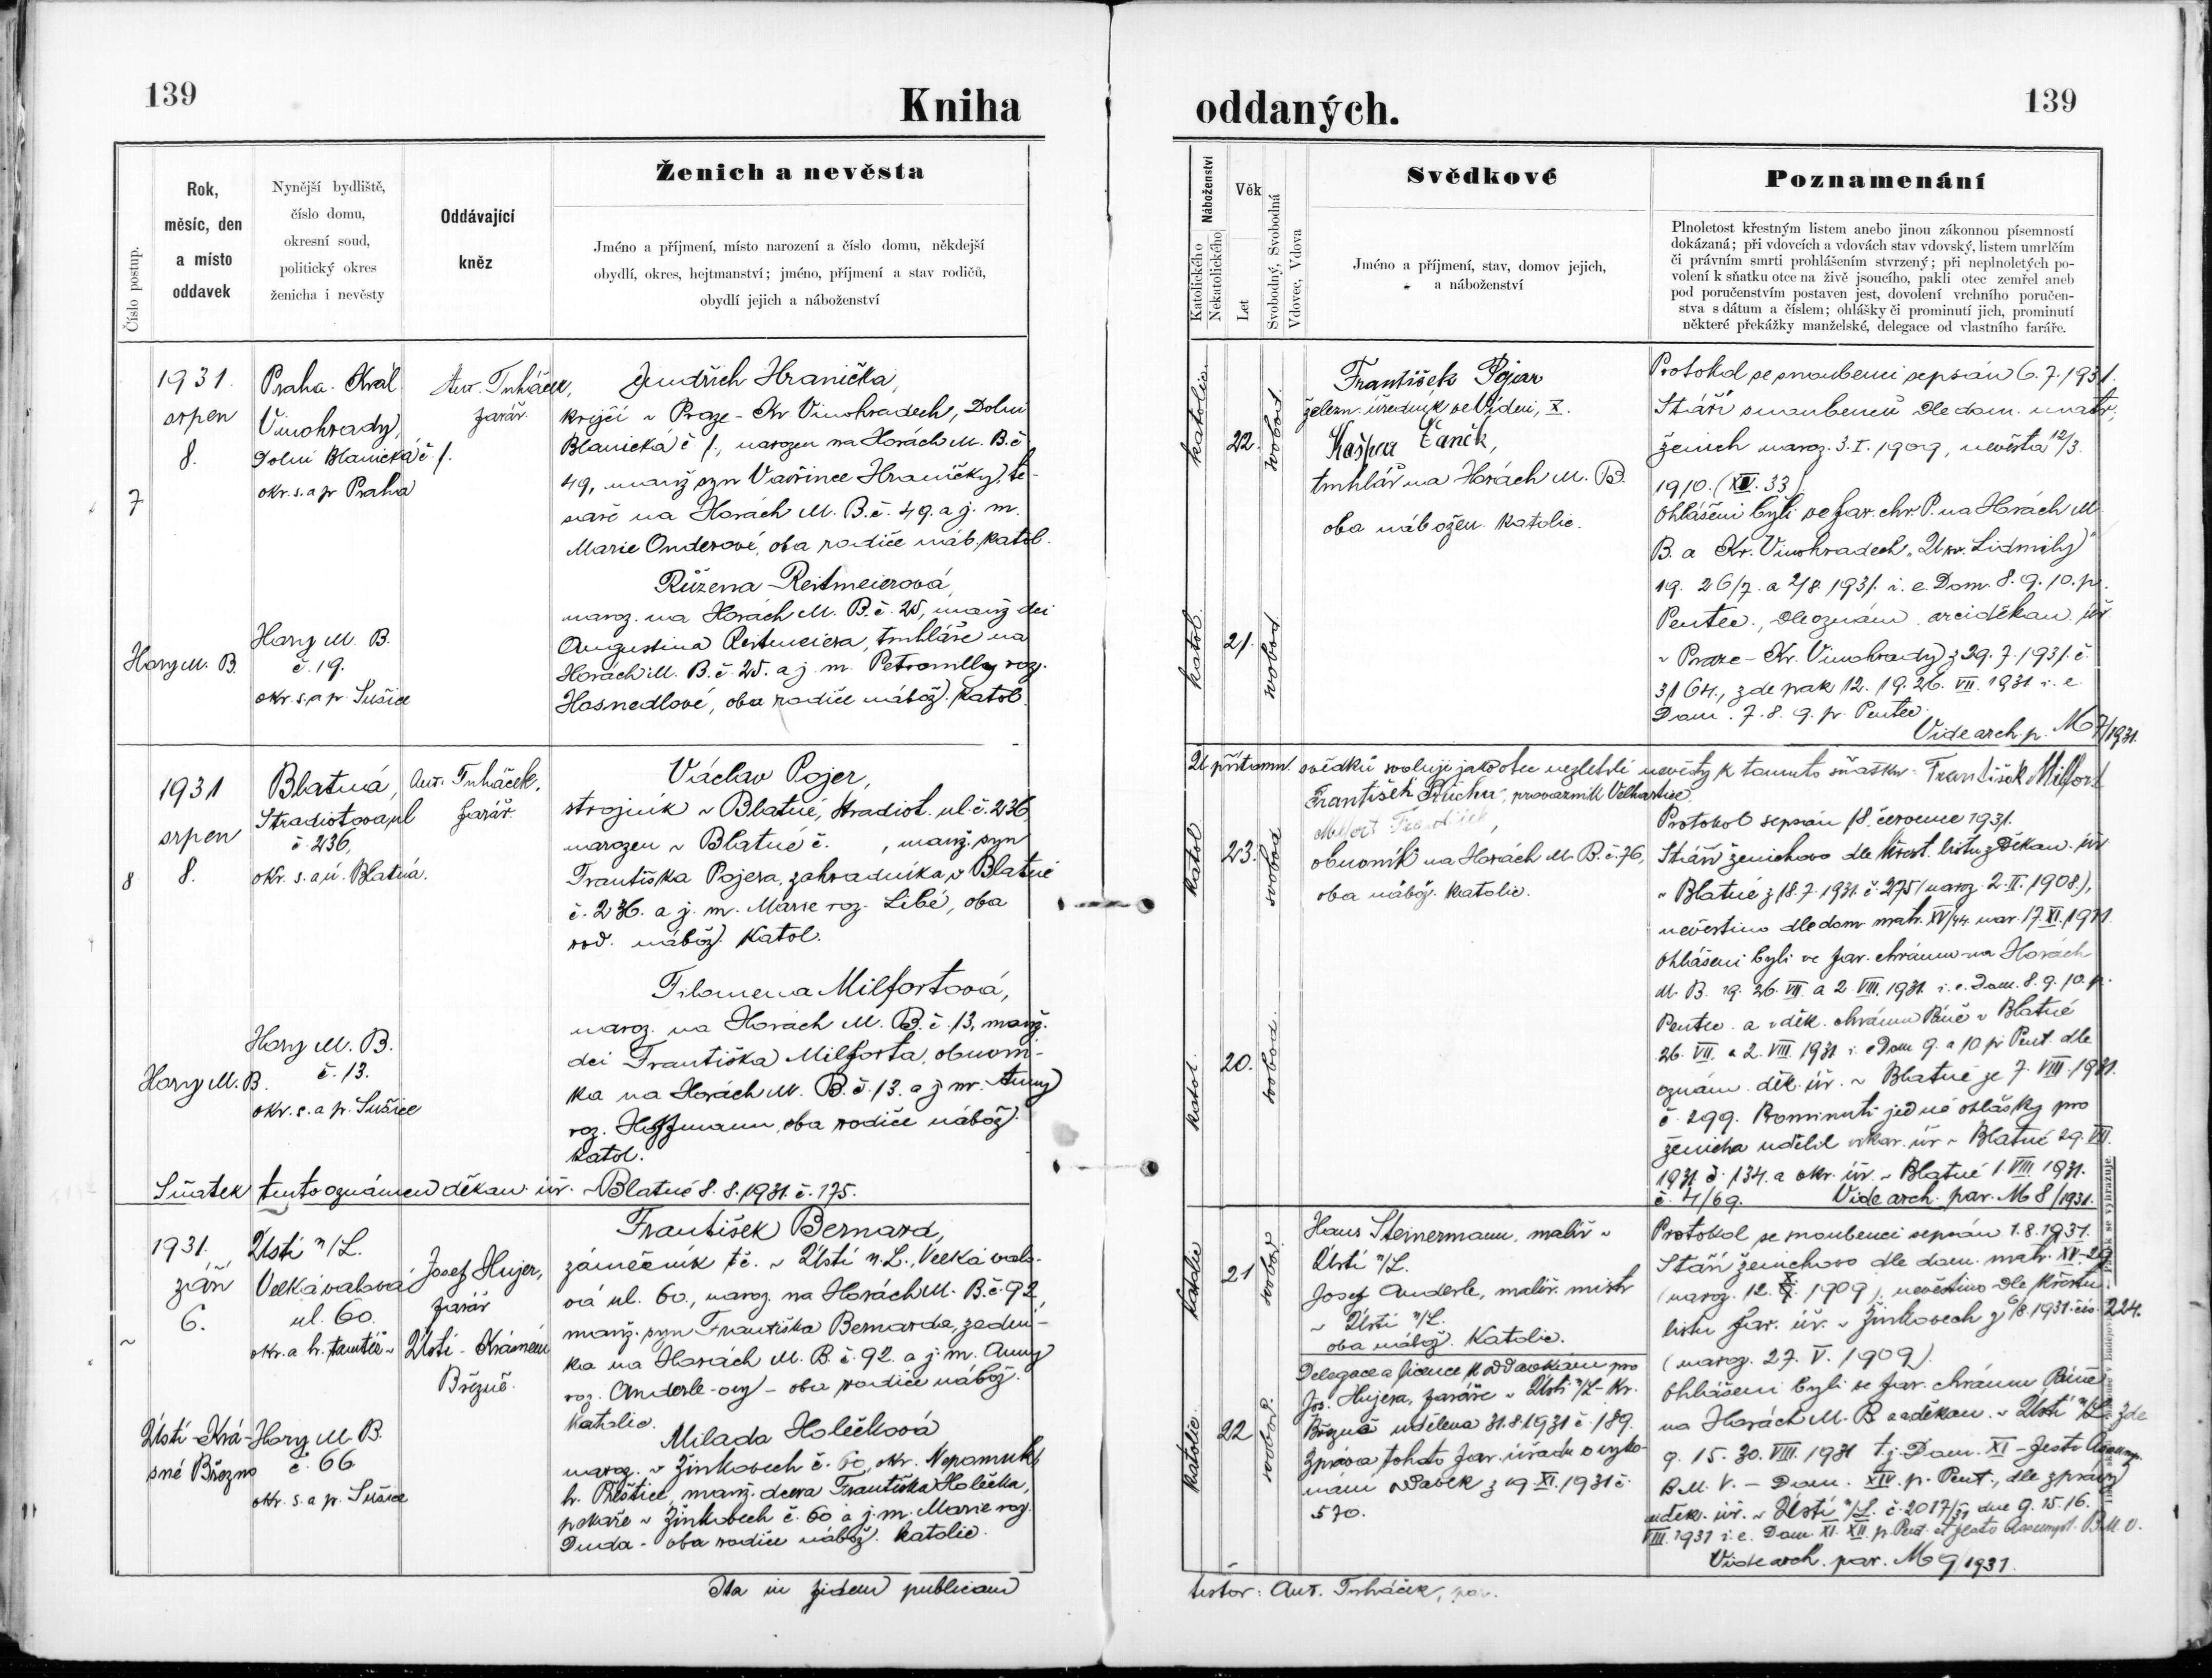 139
Kniha
oddaných.
139
Číslo postup.
Rok,
měsíc, den
a místo
oddavek
Nynější bydliště,
číslo domu,
okresní soud,
politický okres
ženicha i nevěsty
Oddávající
kněz
Ženich a nevěsta
Jméno a příjmení, místo narození a číslo domu, někdejší
obydlí, okres, hejtmanství; jméno, příjmení a stav rodičů,
obydlí jejich a náboženství
Náboženství
Katolického
Nekatolického
Věk
Let
Svobodný, Svobodná
Vdovec, Vdova
Svědkové
Jméno a příjmení, stav, domov jejich,
a náboženství
Poznamenání
Plnoletost křestným listem anebo jinou zákonnou písemností
dokázaná; při vdovcích a vdovách stav vdovský, listem umrlčím
či právním smrti prohlášením stvrzený; při neplnoletých po-
volení k sňatku otce na živě jsoucího, pakli otec zemřel aneb
pod poručenstvím postaven jest, dovolení vrchního poručen-
stva s dátum a číslem; ohlášky či prominutí jich, prominutí
některé překážky manželské, delegace od vlastního faráře.
7
1931.
srpen
8.
Hory M. B.
Praha-Král.
Vinohrady,
Dolní Blanická č 1.
okr. s. a p. Praha
Hory M. B.
č. 19.
okr. s. a p. Sušice
Ant. Trháček,
farář.
Jindřich Hranička,
krejčí v Praze-Kr. Vinohradech, Dolní
Blanická č 1., narozen na Horách M. B. č
49, manž. syn Vavřince Hraničky, te-
saře na Horách M. B. č. 49. a j. m.
Marie Onderové, oba rodiče náb. katol.
Růžena Reitmeierová,
naroz. na Horách M. B. č. 25, manž. dci
Augustina Reitmeiera, truhláře na
Horách M. B. č. 25. a j. m. Petronilly roz.
Hosnedlové, oba rodiče nábož. katol.
katolic.
22.
svobod.
katol.
21.
svobod.
František Pojar
železn. úředník ve Vídni, X.
Kašpar Vaněk,
truhlář na Horách M. B.
oba nábožen. katolic.
Protokol se snoubenci sepsán 6.7.1931.
Stáří snoubenců dle dom. matr.,
ženich naroz. 3. I. 1909, nevěsta 12/3
1910. (XV. 33).
Ohlášeni byli ve far. chr. P. na Horách M.
B. a Kr. Vinohradech „U sv. Lidmily“
19. 26/7. a 2/8 1931. i. e. Dom. 8. 9. 10. p.
Pentec., dle oznám. arciděkan. úř.
v Praze-Kr. Vinohrady z 29.7.1931. č.
3164., zde pak 12. 19. 26. VII. 1931 i. e.
Dom. 7. 8. 9. p. Pentec.
Vide arch. p. M 7/1931.
8
1931
srpen
8.
Hory M. B.
Blatná,
Stradiotova ul
č. 236,
okr. s. a ú. Blatná.
Hory M. B.
č. 13.
okr. s. a p. Sušice
Ant. Trháček,
farář.
Václav Pojer,
strojník v Blatné, Stradiot. ul. č. 236,
narozen v Blatné č. , manž. syn
Františka Pojera, zahradníka v Blatné
č. 236. a j. m. Marie roz. Libé, oba
rod. nábož. katol.
Filomena Milfortová,
naroz. na Horách M. B. č. 13, manž.
dci Františka Milforta, obuvní-
ka na Horách M. B. č. 13. a j. m. Anny
roz. Hoffmann, oba rodiče nábož.
katol.
Sňatek tento oznámen děkan. úř. v Blatné 8. 8. 1931. č. 175.
katol
23.
svobod
katol.
20.
svobod.
U přítomn. svědků svoluji jako otec nezletilé nevěsty k tomuto sňatku: František Milfort
František Řucha, provazník Velhartice.
Milfort František,
obuvník na Horách M. B. č. 76,
oba nábož. katolic.
Protokol sepsán 18. července 1931.
Stáří ženichovo dle křest. listu z děkan. úř.
v Blatné z 18.7.1931. č. 275 (naroz. 2. II. 1908.),
nevěstino dle dom. matr. XV/44. nar. 17. XI. 1911.
Ohlášeni byli ve far. chrámu na Horách
M. B. 19. 26. VII. a 2. VIII. 1931. i. e. Dom. 8. 9. 10. p.
Pentec. a v děk. chrámu Páně v Blatné
26. VII. a 2. VIII. 1931 i. e Dom 9. a 10 p. Pent. dle
oznám. děk. úř. v Blatné ze 7. VIII. 1931.
č. 299. Prominutí jedné ohlášky pro
ženicha udělil vikar. úř. v Blatné 29. VII.
1931 č. 134. a okr. úř. v Blatné 1. VIII. 1931.
č. 4/69. Vide arch. par. M 8/1931.
1931.
září
6.
Ústí-Krá-
sné Březno
Ústí n/L.
Velká valová
ul. 60.
okr. a h. tamtéž
Hory M. B.
č. 66
okr. s. a p. Sušice
Josef Hujer,
farář
Ústí - Krásném
Březně.
František Bernard,
zámečník t. č. v Ústí n. L., Velká valo-
vá ul. 60., naroz. na Horách M. B. č. 92,
manž. syn Františka Bernarda, zední-
ka na Horách M. B. č. 92. a j. m. Anny
roz. Anderle-ovy - oba rodiče nábož.
katolic.
Milada Holečková
naroz. v Žinkovech č. 60, okr. Nepomuk,
h. Přeštice, manž. dcera Františka Holečka,
pekaře v Žinkovech č. 60 a j. m. Marie roz.
Duda - oba rodiče nábož. katolic.
katolic
21
svobod.
katolic.
22
svobod.
Hans Steinermann, malíř v
Ústí n/L.
Josef Anderle, malíř. mistr
v Ústí n/L.
oba nábož. Katolic.
Delegace a licence k oddavkám pro
Jos. Hujera, faráře v Ústí n/L-Kr.
Březně udělena 31.8.1931 č. 189.
Zpráva tohoto far. úřadu o vyko-
nání oddavek z 19. XI. 1931 č.
570.
Protokol se snoubenci sepsán 1.8.1931.
Stáří ženichovo dle dom. matr. XV-29
(naroz. 12. X. 1909), nevěstino dle křestn.
listu far. úř. v Žinkovech z 6/8. 1931. čís. 224.
(naroz. 27. V. 1909).
Ohlášeni byli ve far. chrámu Páně
na Horách M. B. a v děkan. v Ústí n/L. zde
9. 15. 30. VIII. 1931 t. j. Dom. XI - Festo Assumpt.
B. M. V. - Dom. XIV. p. Pent., dle zprávy
děk. úř. v Ústí n/L. č. 2017/31 dne 9. 15. 16.
VIII. 1931 i. e. Dom. XI. XII. p. Pent. et festo Assumpt. B. M. V.
Vide arch. par. M 9/1931
Ita in fidem publicam
testor: Ant. Trháček, par.